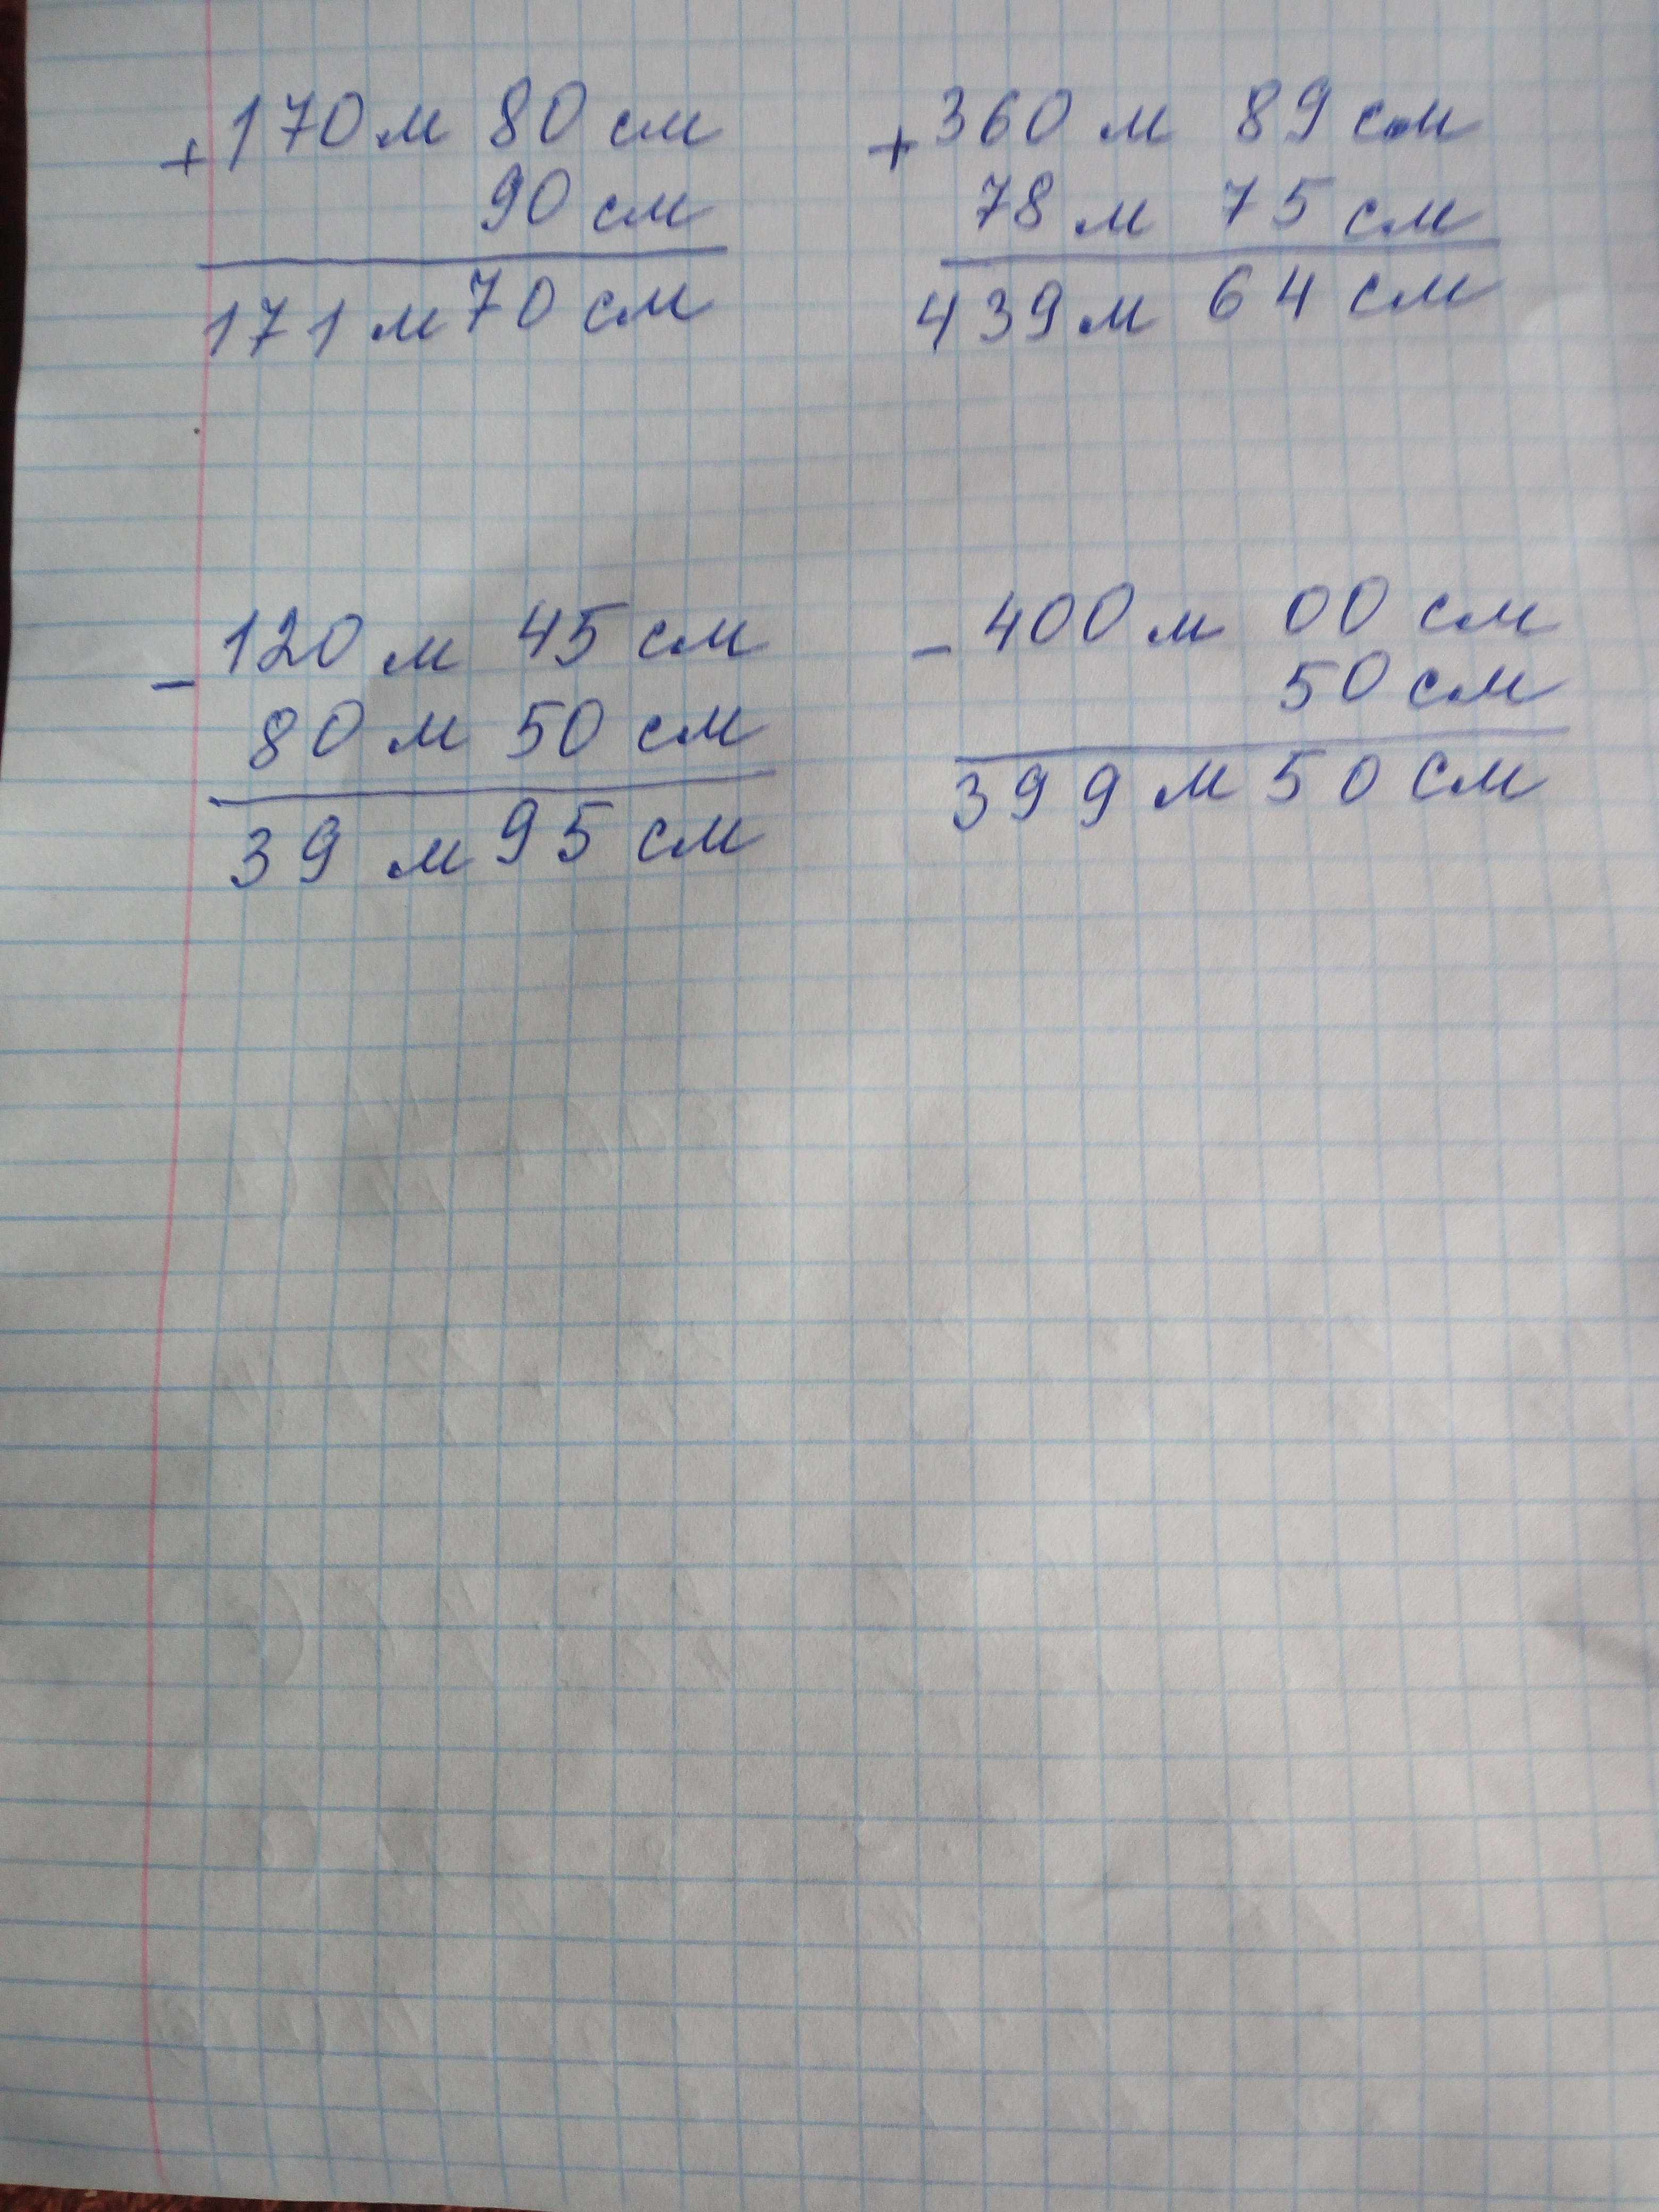 + 170 м 80 см
90 см
171 м 70 см
+ 360 м 89 см
78 м 75 см
439 м 64 см
- 120 м 45 см
80 м 50 см
39 м 95 см
- 400 м 00 см
50 см
399 м 50 см